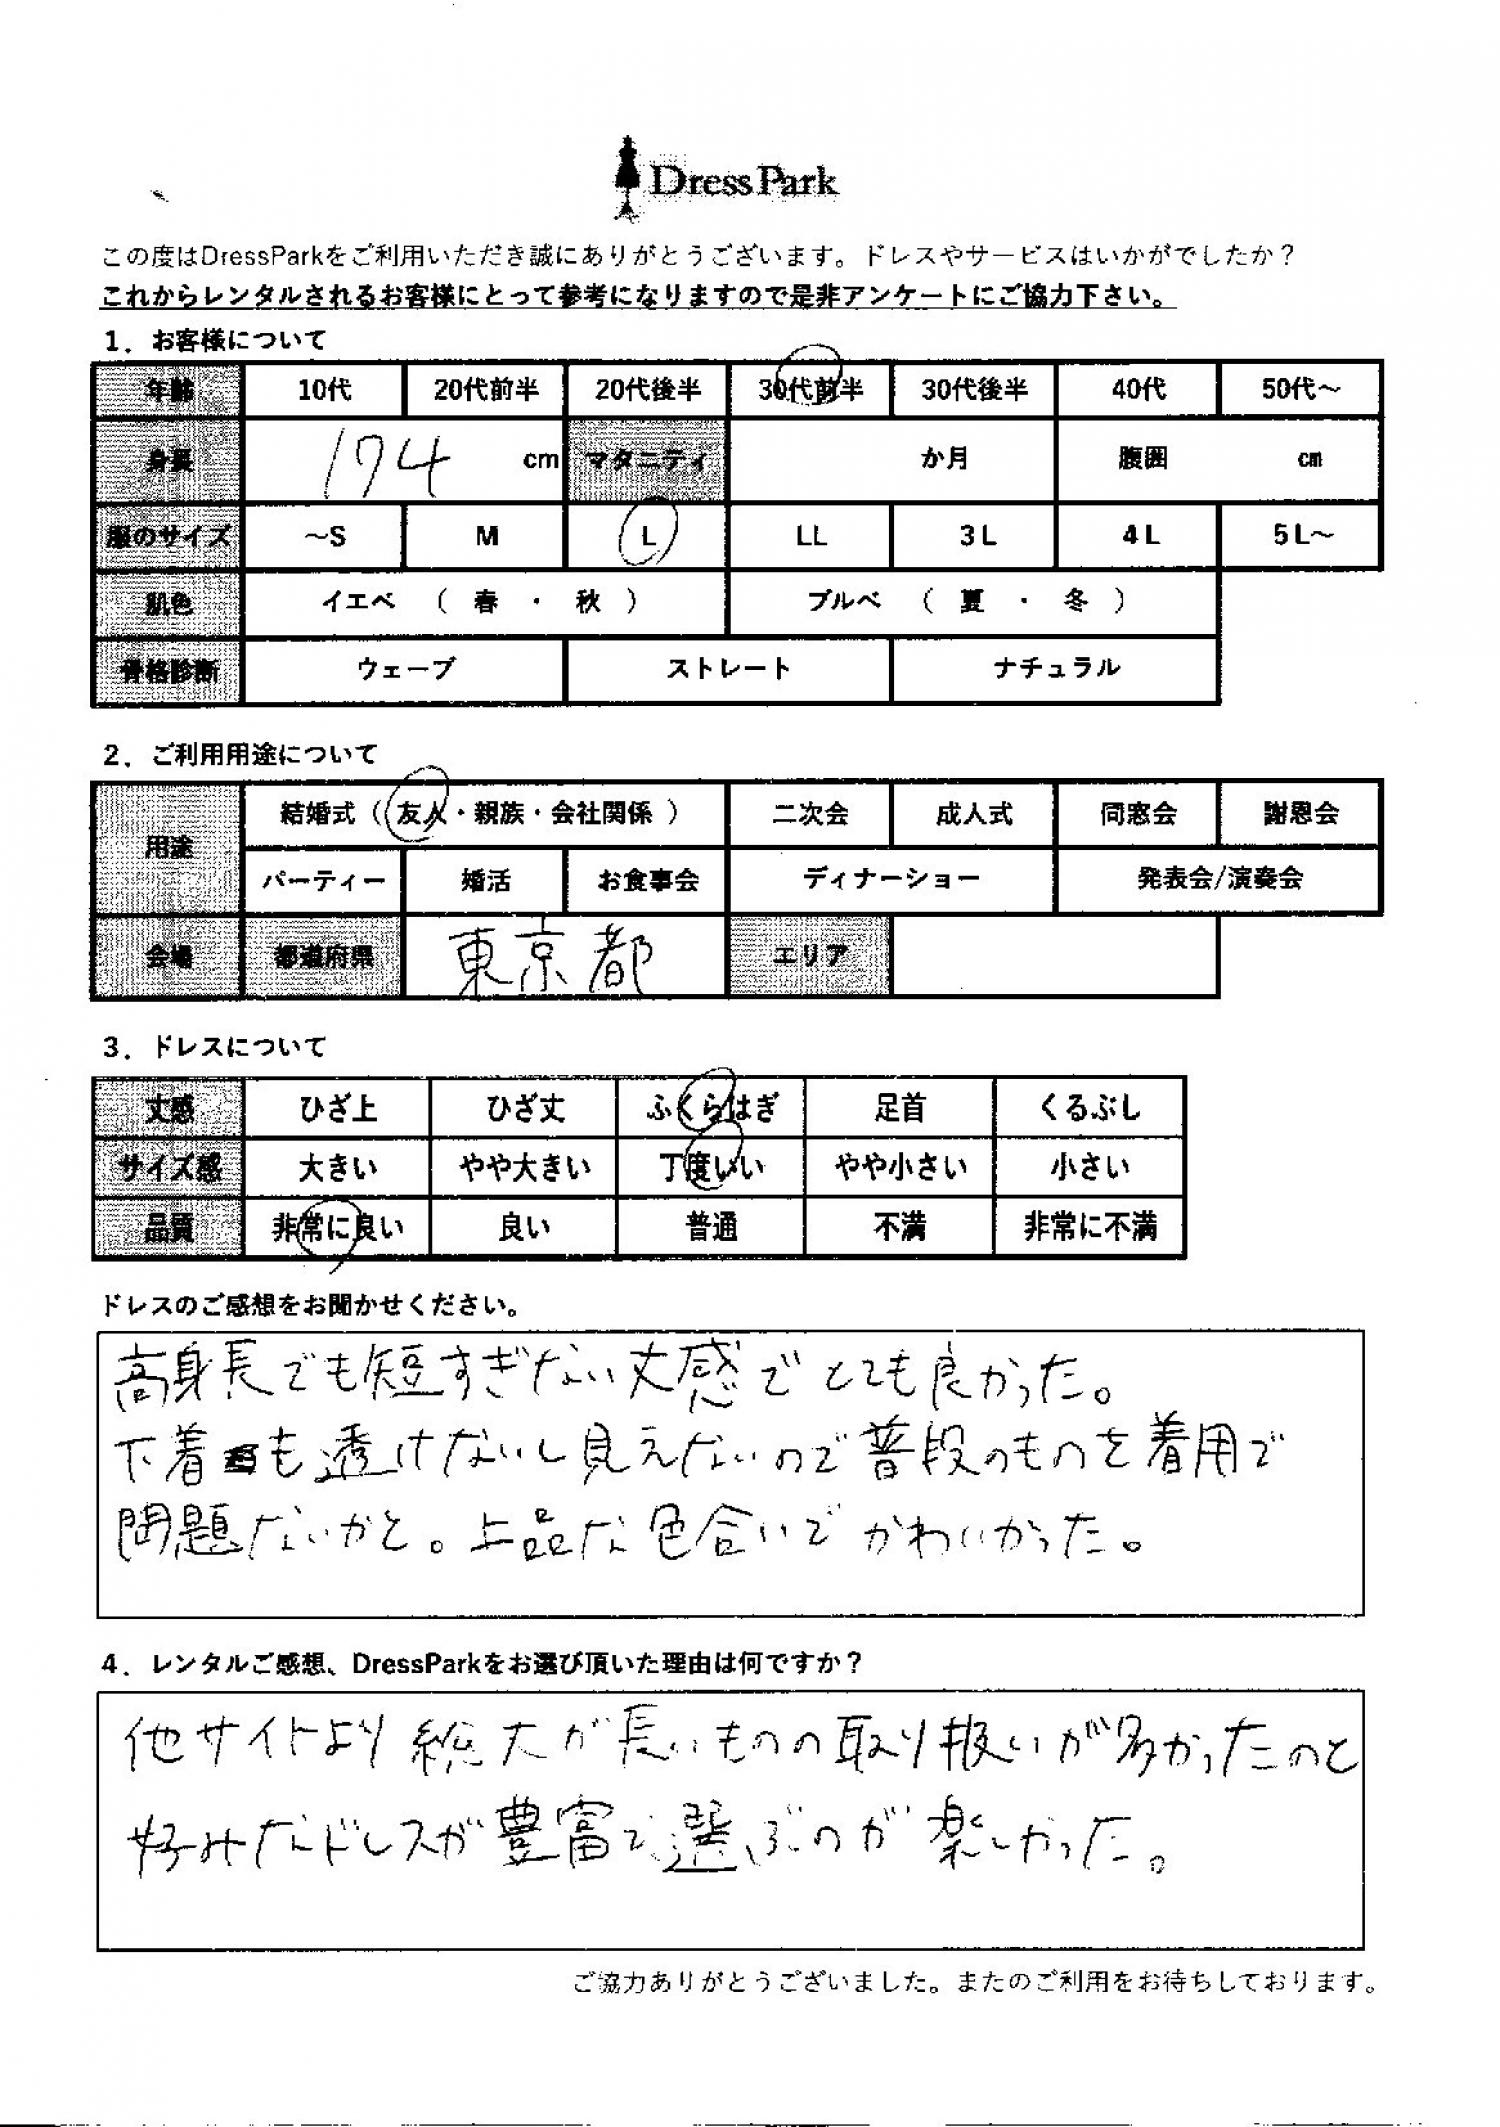 DressPark
この度はDressParkをご利用いただき誠にありがとうございます。ドレスやサービスはいかがでしたか？
これからレンタルされるお客様にとって参考になりますので是非アンケートにご協力下さい。
1．お客様について
年齢 10代 20代前半 20代後半 30代前半 30代後半 40代 50代～
身長 174 cm マタニティ か月 腹囲 cm
服のサイズ ～S M L LL 3L 4L 5L～
肌色 イエベ （ 春 ・ 秋 ） ブルベ （ 夏 ・ 冬 ）
骨格診断 ウェーブ ストレート ナチュラル
2．ご利用用途について
用途 結婚式（ 友人・親族・会社関係 ） 二次会 成人式 同窓会 謝恩会
パーティー 婚活 お食事会 ディナーショー 発表会/演奏会
会場 都道府県 東京都 エリア
3．ドレスについて
丈感 ひざ上 ひざ丈 ふくらはぎ 足首 くるぶし
サイズ感 大きい やや大きい 丁度いい やや小さい 小さい
品質 非常に良い 良い 普通 不満 非常に不満
ドレスのご感想をお聞かせください。
高身長でも短すぎない丈感でとても良かった。
下着も透けないし見えないので普段のものを着用で
問題ないかと。上品な色合いでかわいかった。
4．レンタルご感想、DressParkをお選び頂いた理由は何ですか？
他サイトより総丈が長いものの取り扱いが多かったのと
好みなドレスが豊富で選ぶのが楽しかった。
ご協力ありがとうございました。またのご利用をお待ちしております。